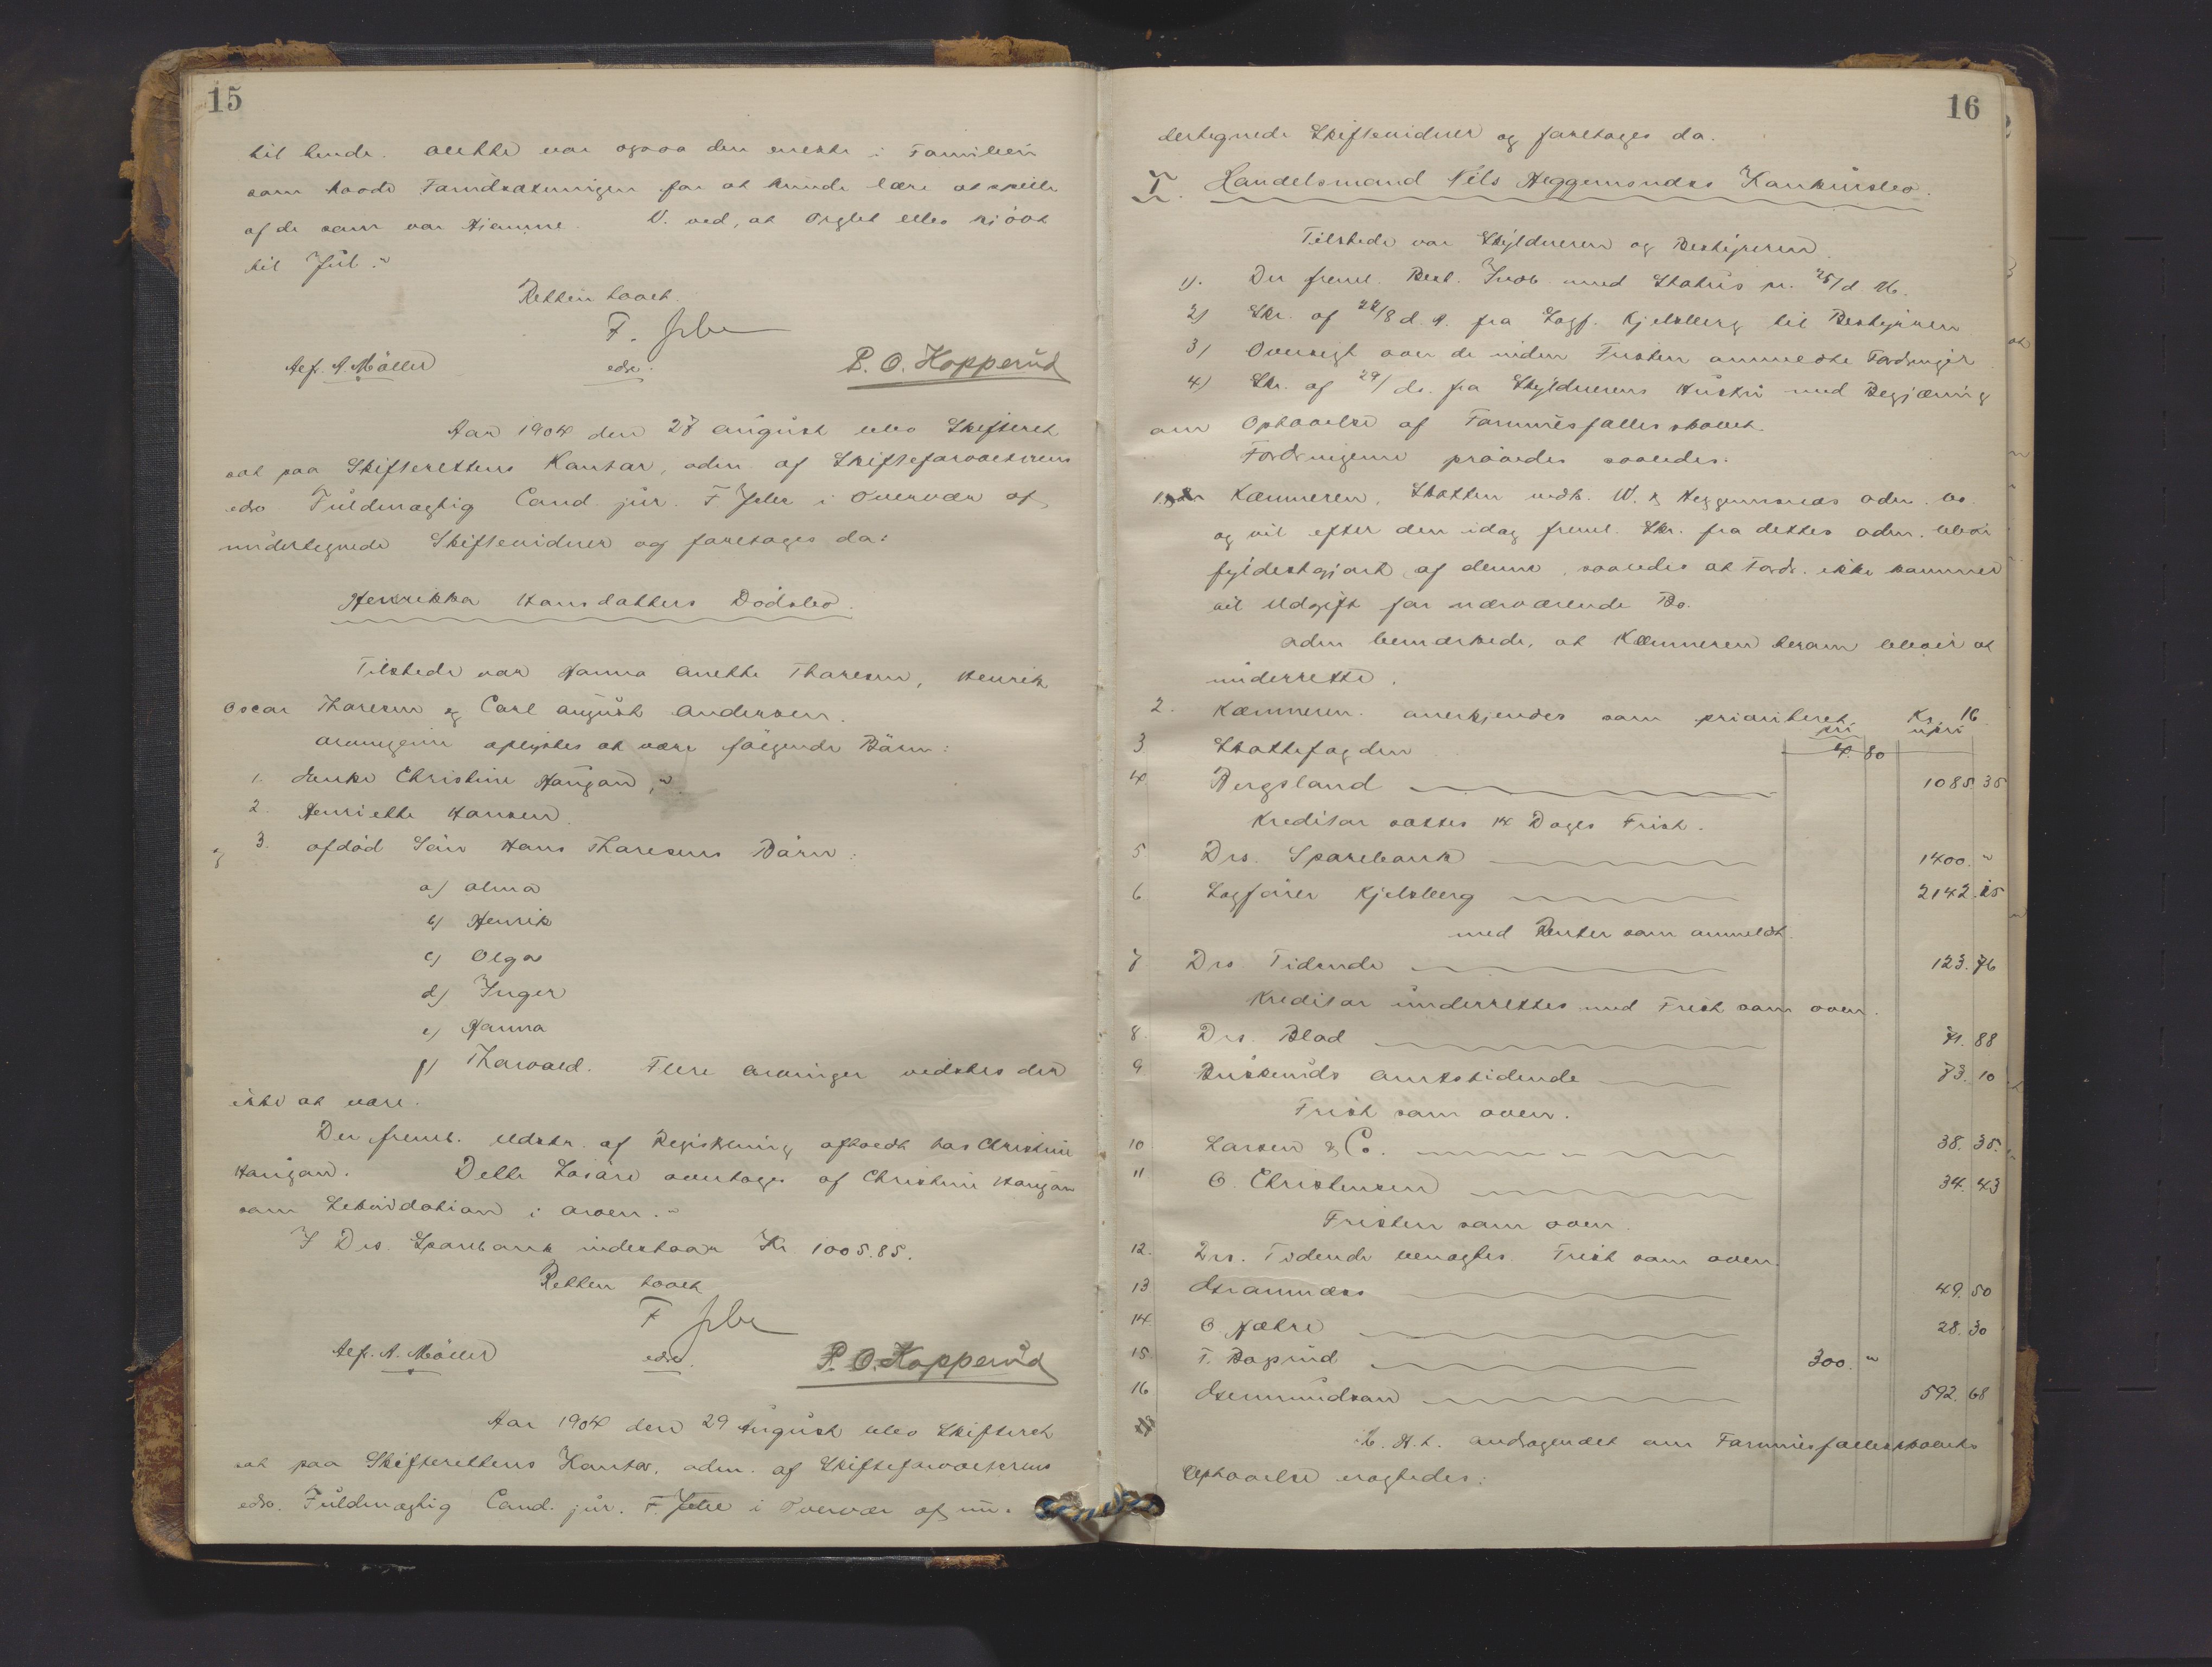 15
til hende. Anethe var ogsaa den eneste i Familien
som havde Forudsætninger for at kunde lære at spille
af de som var Hjemme. V. ved, at Orglet blev kjöbt
til Jul."
Retten hævet.
F.
Alf. A. Möller edsv. P. O. Kopperud
Aar 1904 den 27 August blev Skifteret
sat paa Skifterettens Kontor, adm. af Skifteforvalterens
edsv Fuldmægtig Cand. jur. F. i Overvær af
undertegnede Skiftevidner og foretoges da:
Henrikka Hansdatters Dödsbo.
Tilstede var Hanna Anethe Thoresen, Henrik
Oscar Thoresen og Carl August Andersen.
Arvingerne oplystes at være fölgende Börn:
1. Christine Haugan,
2. Henriette Hansen.
og 3. afdöd Sön Hans Thoresens Börn:
a) Alma
b) Henrik
c) Olga
d) Inger
e) Hanna
f) Thorvald. Flere Arvinger vidstes der
ikke at være.
Der freml. Udskr. af Registrering afholdt hos Christine
Haugan. Dette Lösöre overtoges af Christine Haugan
som i Arven."
I Drs. Sparebank indestaar Kr. 1005.85.
Retten hævet
F
Alf. A. Möller edsv. P. O. Kopperud
Aar 1904 den 29 August blev Skifteret
sat paa Skifterettens Kontor, adm. af Skifteforvalterens
edsv. Fuldmægtig Cand. jur. F. i Overvær af un-
16
dertegnede Skiftevidner og foretoges da.
I. Handelsmand Nils Heggemsnæs Konkursbo.
Tilstede var Skyldneren og Bestyreren
1). Der freml. Best. Indb. med Status pr. 25/ d. M.
2) Skr. af 22/8 d. A. fra Sagf. Kjelsberg til Bestyreren
3) Oversigt over de inden Fristen anmeldte Fordringer
4) Skr. af 29/ ds. fra Skyldnerens Hustru med Begjæring
om Ophævelse af Formuesfællesskabet.
Fordringerne prövedes saaledes:
1. Kæmneren. Skatten vedk. W. & Heggemsnæs adm. Bo
og vil efter den idag freml. Skr. fra dettes adm. blive
fyldestgjort af denne, saaledes at Fordr. ikke kommer
til Udgift for nærværende Bo.
Adm bemærkede, at Kæmneren herom bliver at
underrette.
2. Kæmneren. anerkjendes som prioriteret. Kr. 16
pri upri
3 Skattefogden 4. 80
4 Bergsland 1085 35
Kreditor sættes 14 Dages Frist.
5 Drs. Sparebank 1400. "
6 Sagförer Kjelsberg 2142.
med Renter som anmeldt.
7 Drs Tidende 123. 76
Kreditor underrettes med Frist som oven.
8. Drs. Blad 71. 88
9 Buskeruds Amtstidende 73. 10
Frist som oven.
10 Larsen & Co. 38. 35.
11 O. Christensen 34. 43
Fristen som oven.
12. Drs. Tidende benægtes. Frist som oven.
13 49. 50
14. O. Næhre 28. 30
15. T. Bogerud 300. "
16 Asmundsen 592. 68
Andragendet om Formuesfællesskabets
Ophævelse vragtedes: